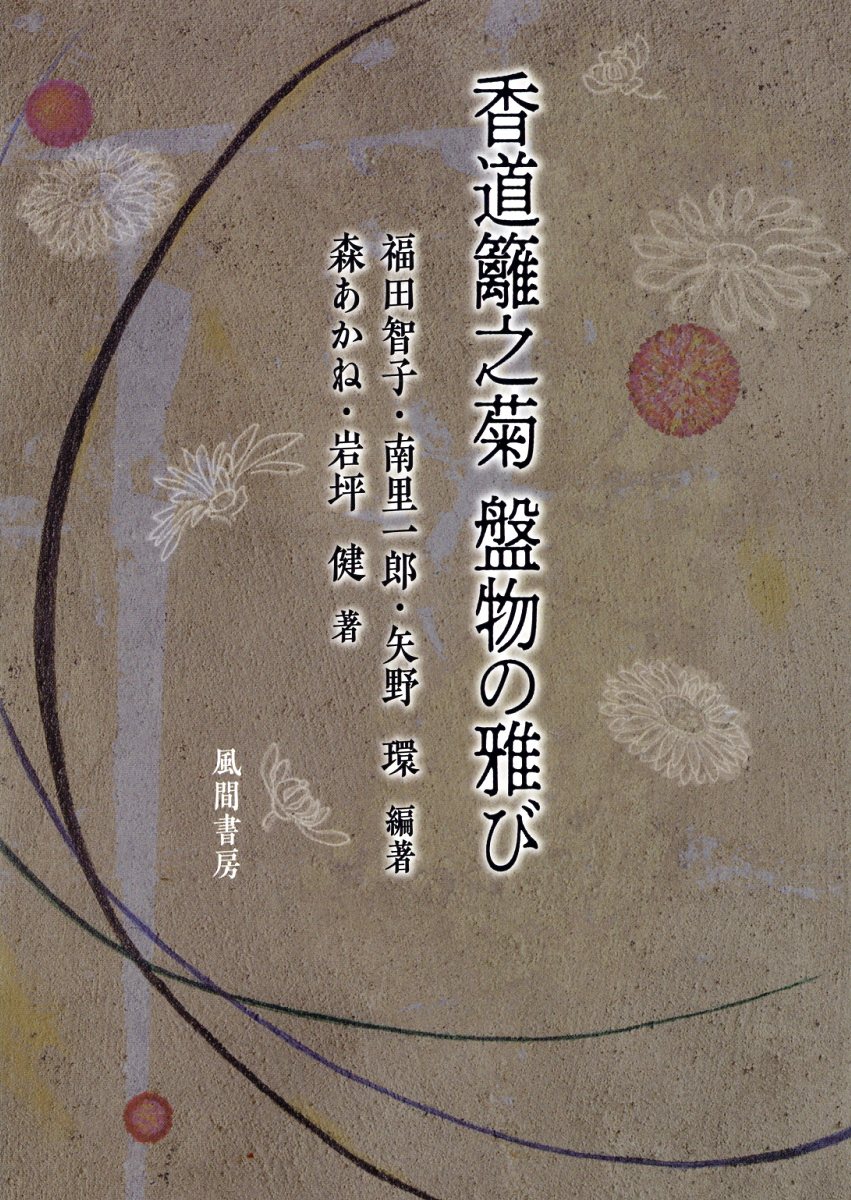 香道籬之菊 盤物の雅び
福田智子・南里一郎・矢野 環 編著
森あかね・岩坪 健 著
風間書房